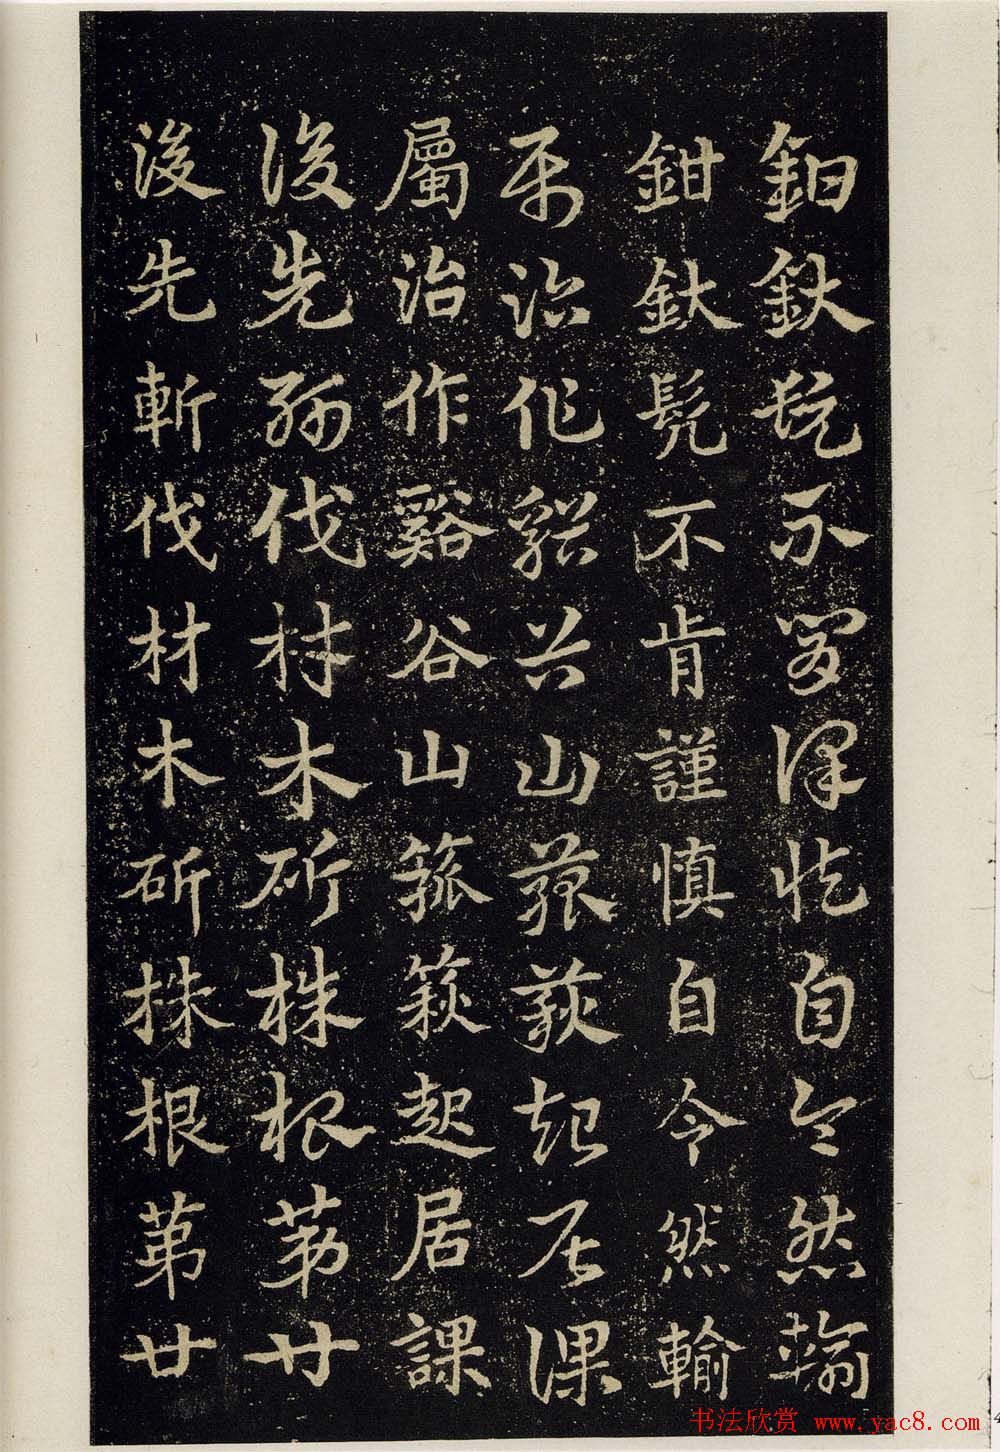 鉗釱髡不肯謹慎自令然輸
鉗釱髡不肯謹慎自令然輸
屬治作谿谷山箛篍起居課
屬治作谿谷山箛篍起居課
後先斬伐材木斫株根第廿
後先斬伐材木斫株根第廿
书法欣赏 www.yac8.com
4